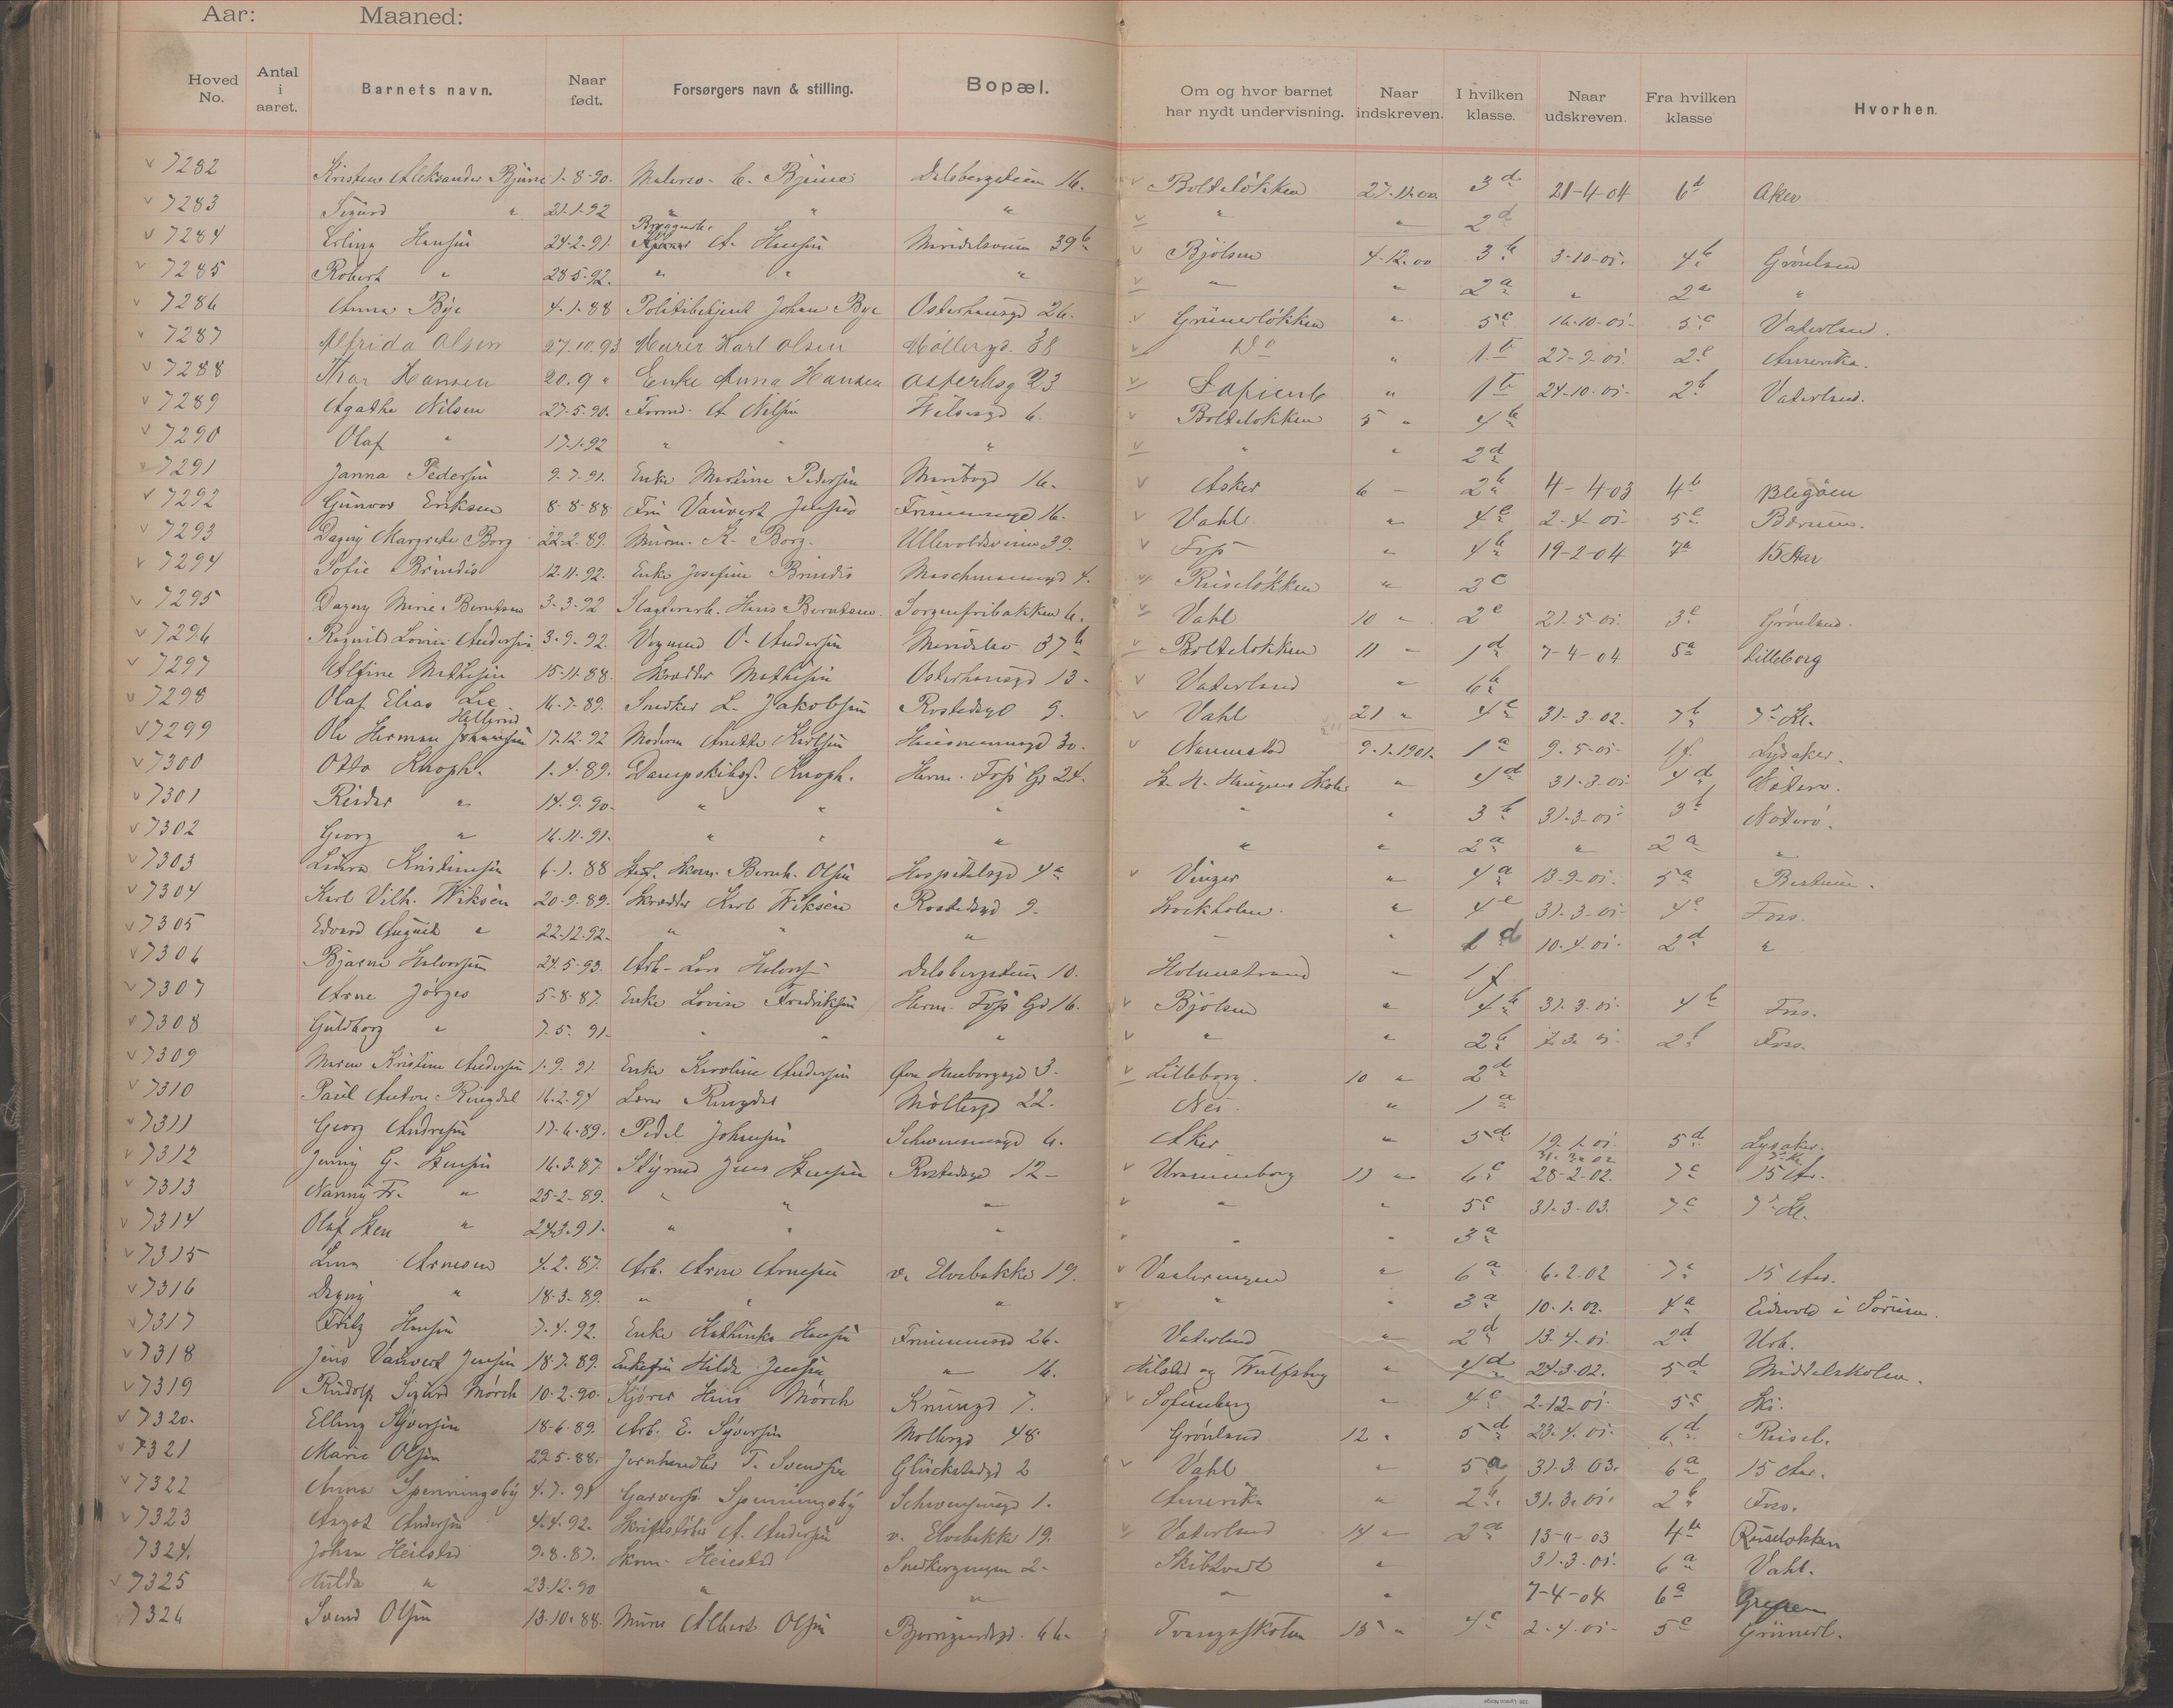 Aar: Maaned:
Hoved No. Antal i aaret. Barnets navn. Naar født. Forsørgers navn & stilling. Bopæl. Om og hvor barnet har nydt undervisning. Naar indskreven. I hvilken klasse. Naar udskreven. Fra hvilken klasse Hvorhen.
7282 Kristen Aleksander Bjune 1-8-90. C. Bjune 16. Bolteløkken 27-11-00 3d 21-4-04 6b Aker
7283 Sigurd " 21-1-92 " " " " " 2d
7284 Erling Hansen 24-2-91. A. Hansen 39b Bjølsen 4-12-00 3b 3-10-01. 4b Grønland
7285 Robert " 28-5-92. " " " " " 2a " 2a "
7286 Anna Bye 4-1-88 Politibetjent Johan Bye Osterhausgd 26. Grünerløkken " 5c 16-10-01- 5c Vaterland.
7287 Alfrida Olsen 27.10.93 Murer Karl Olsen Møllergd. 38 Do " 1b 27-9-01. 2c Amerika.
7288 Thor Hansen 20.9 " Enke Anna Hansen Osterhsg 23 Sofienb " 1b 24-10-01- 2b Vaterland.
7289 Agathe Nilsen 27-5-90. Formd. A. Nilsen 6. Bolteløkken 5 " 4b
7290 Olaf " 17-1-92 " " " " " 2d
7291 Janna Pedersen 9-7-91. Enke Martine Pedersen Maribogd 16. Asker 6 - 2b 4-4-03 4b Blegøen
7292 Gunvor Eriksen 8-8-88 Fru Vauvert Jensen 16. Vahl " 4c 2-4-01- 5c Bærum.
7293 Dagny Margrete Borg 22-2-89. Murm. K. Borg. Ullevoldsveien 39. Foss " 4b 19-2-04 7a 15 Aar
7294 Sofie Brindis 12-11-92. Enke Josefine Brindis 4. Ruseløkken " 2c
7295 Dagny Marie Berntsen 3-3-92 Slagterarb. Hans Berntsen Sorgenfribakken 6. Vahl 10 " 2c 21-5-01. 3c Grønland.
7296 Ragnild Lovise Andersen 3-9-92. Vognmd O. Andersen 37b Bolteløkken 11 - 1d 7-4-04 5a Lilleborg
7297 Alfine Mathisen 15-11-88. Skrædder Mathisen Osterhausgd 13. Vaterland " 6b
7298 Olaf Elias Lie 16-7-89. Snedker L. Jakobsen Rostedsgd 9. Vahl 21 " 4c 31-3-02. 7b 7de Kl.
7299 Ole Herman Hellerud 17-12-92 Moderen Anette Karlsen Huusmannsgd 30. Nannestad 9-1-1901. 1a 9-5-01- 1f. Lysaker.
7300 Otto Knoph. 1-4-89. Dampskibsf. Knoph. Herm. Foss Gd 24. St. H. Haugens Skole " 4d 31-3-01- 4d Nøterø.
7301 Reidar " 14-9-90. " " " " " 3b 31-3-01- 3b Nøterø.
7302 Georg " 16-11-91. " " " " " 2a " 2a "
7303 Laura Kristiansen 6-1-88 Skom. Bernh. Olsen Hospitalsgd 4a Vinger " 4a 13-9-01- 5a Bestum.
7304 Karl Vilh. Wiksen 20-9-89. Skrædder Karl Wiksen Rostedsgd 9. Stockholm. " 4c 31-3-01- 4c Foss.
7305 Edvard August " 22-12-92. " " " - " 1d 10-4-01- 2d "
7306 Bjarne Halvorsen 24-5-93. Arb. Lars Halvors 10. Holmestrand " 1f
7307 Arne Jørges 5-8-87. Enke Lovise Fredriksen Herm. Foss Gd 16. Bjølsen " 4b 31-3-01- 4b Foss.
7308 Guldborg " 7-5-91- " " " " " 2b 2b Foss.
7309 Maren Kristine Andersen 1-9-91. Enke Karoline Andersen 3. Lilleborg. 10 " 2d
7310 Paul Anton Ringdal 16-2-94 Ringdal Møllergd 22. Nei. " 1a
7311 Georg Andresen 17-6-89. Pedel Johnsen Schwensensgd 6. Aker " 5d 19-1-01. 5d Lysaker.
7312 Jenny G. Stensen 16-3-87. Styrmd Jens Stensen Rostedsgd 12 - Uranienborg 11 " 6c 28-2-02. 7c 15 Aar.
7313 Nanny Fr. " 25-2-89. " " " " " 5c 31-3-03. 7c 7de Kl.
7314 Olaf Sten " 24-3-91. " " " " " 3a
7315 Arnesen 4-2-87. Arb. Arne Arnesen v. Elvebakke 19. Vaalerengen " 6a 6-2-02 7c 15 Aar.
7316 Dagny " 18-3-89. " " " " " 3a 10-1-02. 4a Eidsvold i Sørum.
7317 Fritz Hansen 7-4-92. Enke Kathinka Hansen 26. Vaterland " 2d 13-4-01- 2d
7318 Jens Vauvert Jensen 18-7-89. Enkefru Hilda Jensen " 16. " 4d 24-3-02. 5d Middelskolen.
7319 Rudolf Sigurd Mörch 10-2-90. Kjører Hans Mörch Knudsgd 7. Sofienberg " 4c 2-12-01- 5c Ski.
7320. Elling Syversen 18-6-89. Arb. E. Syversen Møllergd 48 Grønland 12 " 5d 23-4-01- 6d Rusel.
7321 Marie Olsen 29-5-88. Jernhandler T. Svendsen Glückstadgd 2 Vahl " 5a 31-3-03. 6a 15 Aar.
7322 Anna Spenningsby 4-7-91 Garvers. Spenningsby Schwensensgd 1. Amerika " 2b. 31-3-01. 2b Foss.
7323 Aagot Andersen 4-4-92. Skriftstøber A. Andersen v. Elvebakke 19. Vaterland 14 " 2a 13-11-03 4b Ruseløkken
7324. Johan Heiestad 9-8-87. Skom. Heiestad Snedkergangen 2. Skibtvedt " 31-3-01. 6a Vahl.
7325 Hulda " 23-12-90 " " " " 7-4-04 6a
7326 Svend Olsen 13-10-88. Albert Olsen Tvangsskolen 15 " 4c 2-4-01- 5c Grünerl.